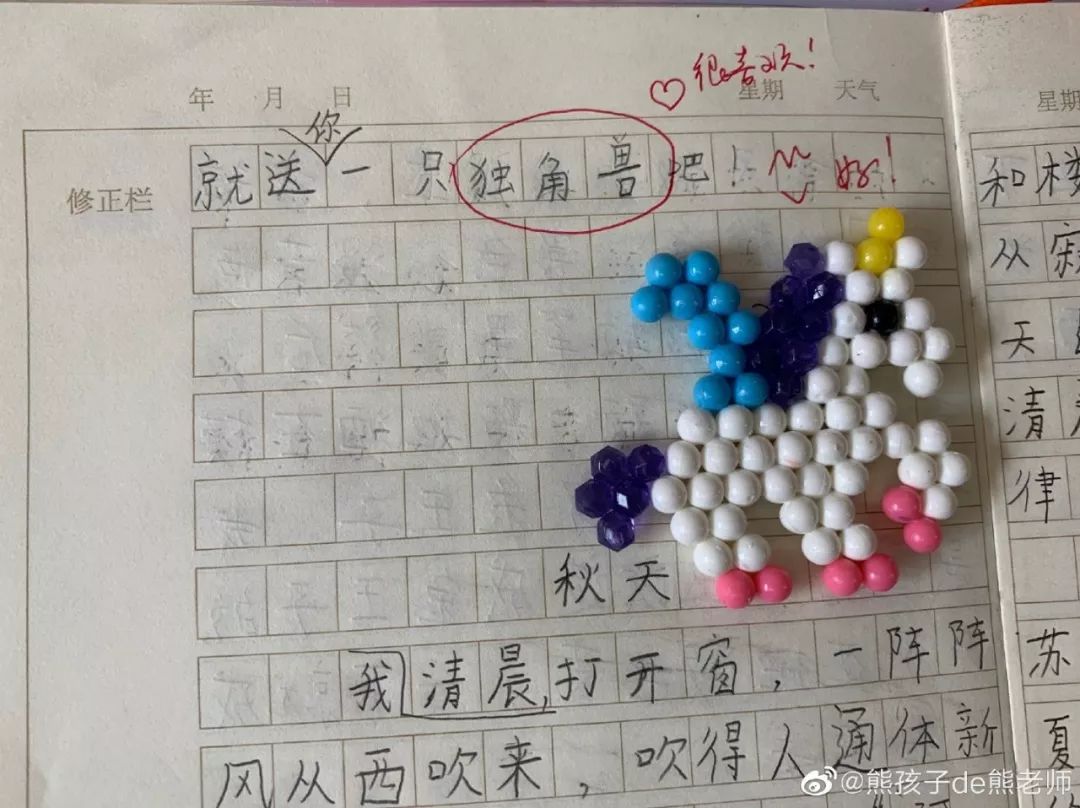 很喜欢！
年 月 日 星期 天气
星期
你
就送一只独角兽吧！ 好！
修正栏
和楼
从寂
天
清
律
秋天
我清晨，打开窗，一阵阵
苏
风从西吹来，吹得人通体新
夏
@熊孩子de熊老师